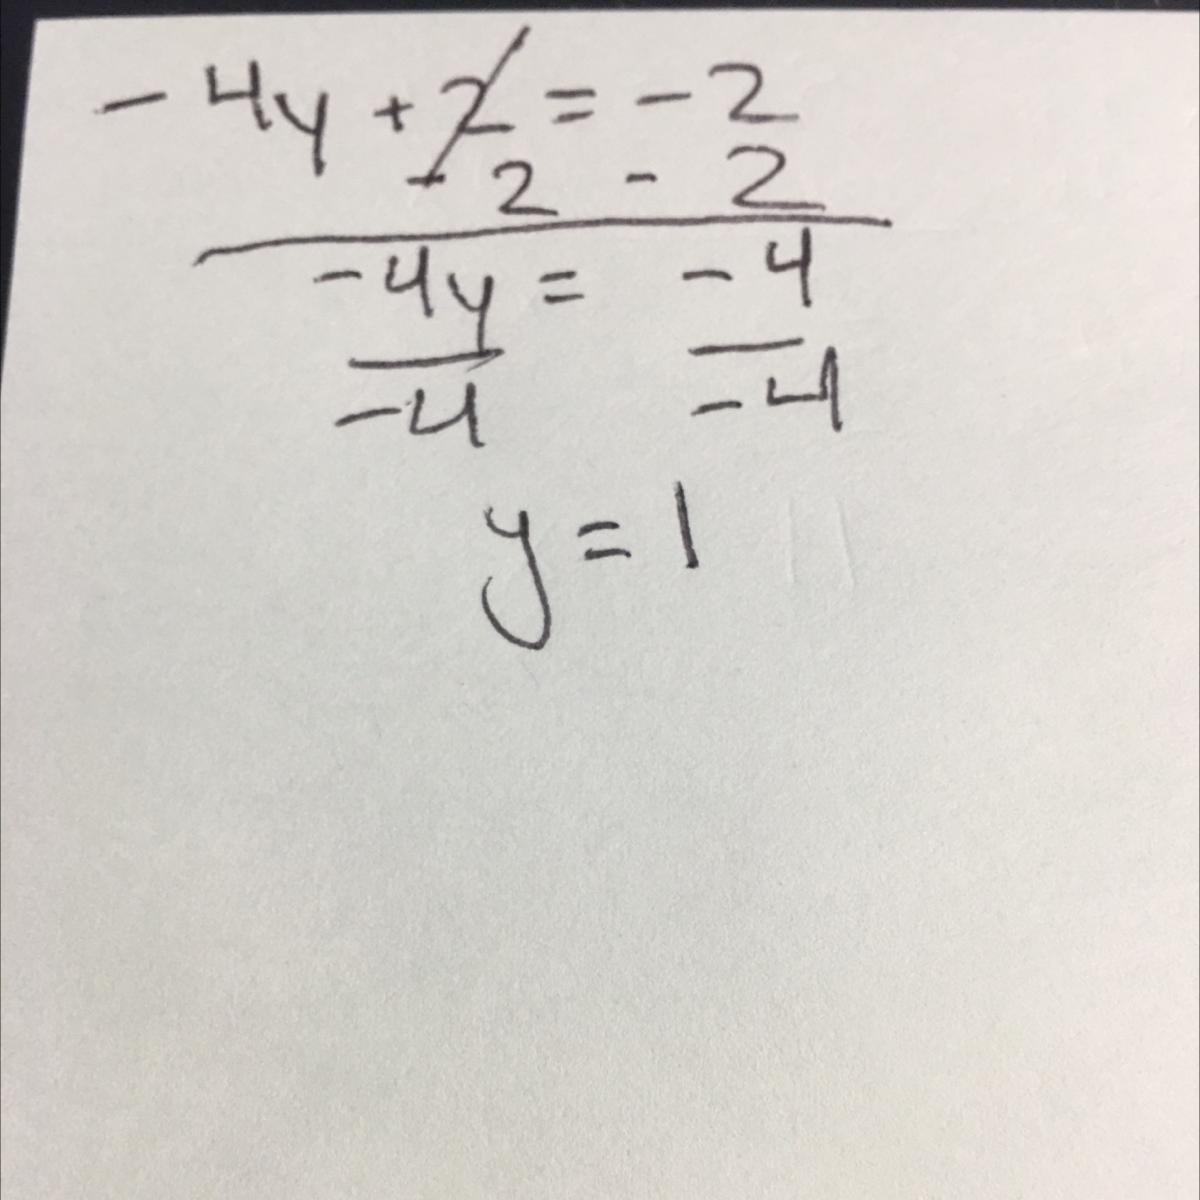 -4y + 2 = -2
- 2 - 2
-4y = -4
-4 -4
y = 1